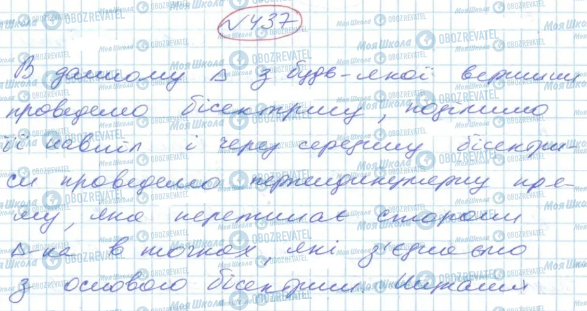 №437
В данному Δ з будь-якої вершини
проведемо бісектрису, поділимо
її навпіл і через середину бісектри-
си проведемо перпендикулярну пря-
му, яка перетинає сторони
Δ-ка в точках, які з'єднаємо
з основою бісектриси.